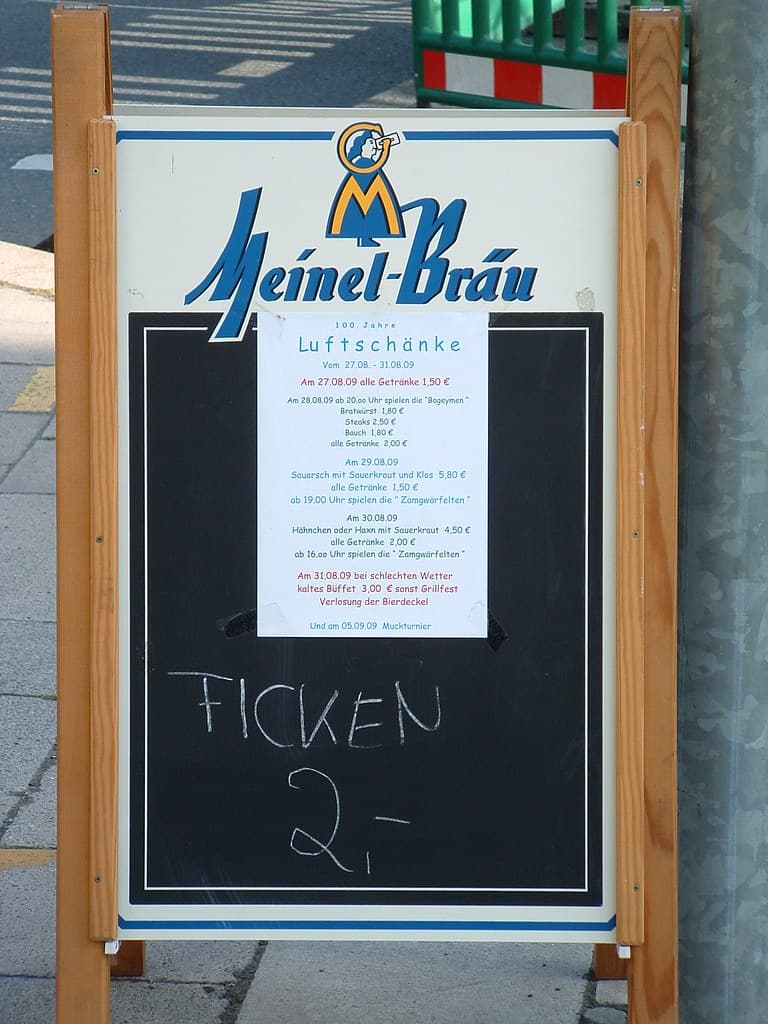 M
Meinel-Bräu
100 Jahre
Luftschänke
Vom 27.08. - 31.08.09
Am 27.08.09 alle Getränke 1,50 €
Am 28.08.09 ab 20.oo Uhr spielen die "Bogeymen"
Bratwürst 1,80 €
Steaks 2,50 €
Bauch 1,80 €
alle Getränke 2,00 €
Am 29.08.09
Sauarsch mit Sauerkraut und Klos 5,80 €
alle Getränke 1,50 €
ab 19.00 Uhr spielen die " Zamgwärfelten "
Am 30.08.09
Hähnchen oder Haxn mit Sauerkraut 4,50 €
alle Getränke 2,00 €
ab 16.oo Uhr spielen die " Zamgwärfelten "
Am 31.08.09 bei schlechten Wetter
kaltes Büffet 3,00 € sonst Grillfest
Verlosung der Bierdeckel
Und am 05.09.09 Muckturnier
FICKEN
2,-